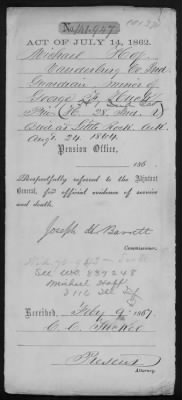 No. 141.947
ACT OF JULY 14, 1862.
Michael Hoff
Vanderburg Co Ind
Guardian minor of
George
Priv. 28. Ind.
Died at Little Rock Ark
Aug. 24. 1864.
Pension Office,
186 .
Respectfully referred to the Adjutant
General, for official evidence of service
and death.
Joseph H Barrett
Commissioner.
See WC 887248
Michael Hoff
Received, Feby 9 1867
C. C. McKee
Present
Attorney.